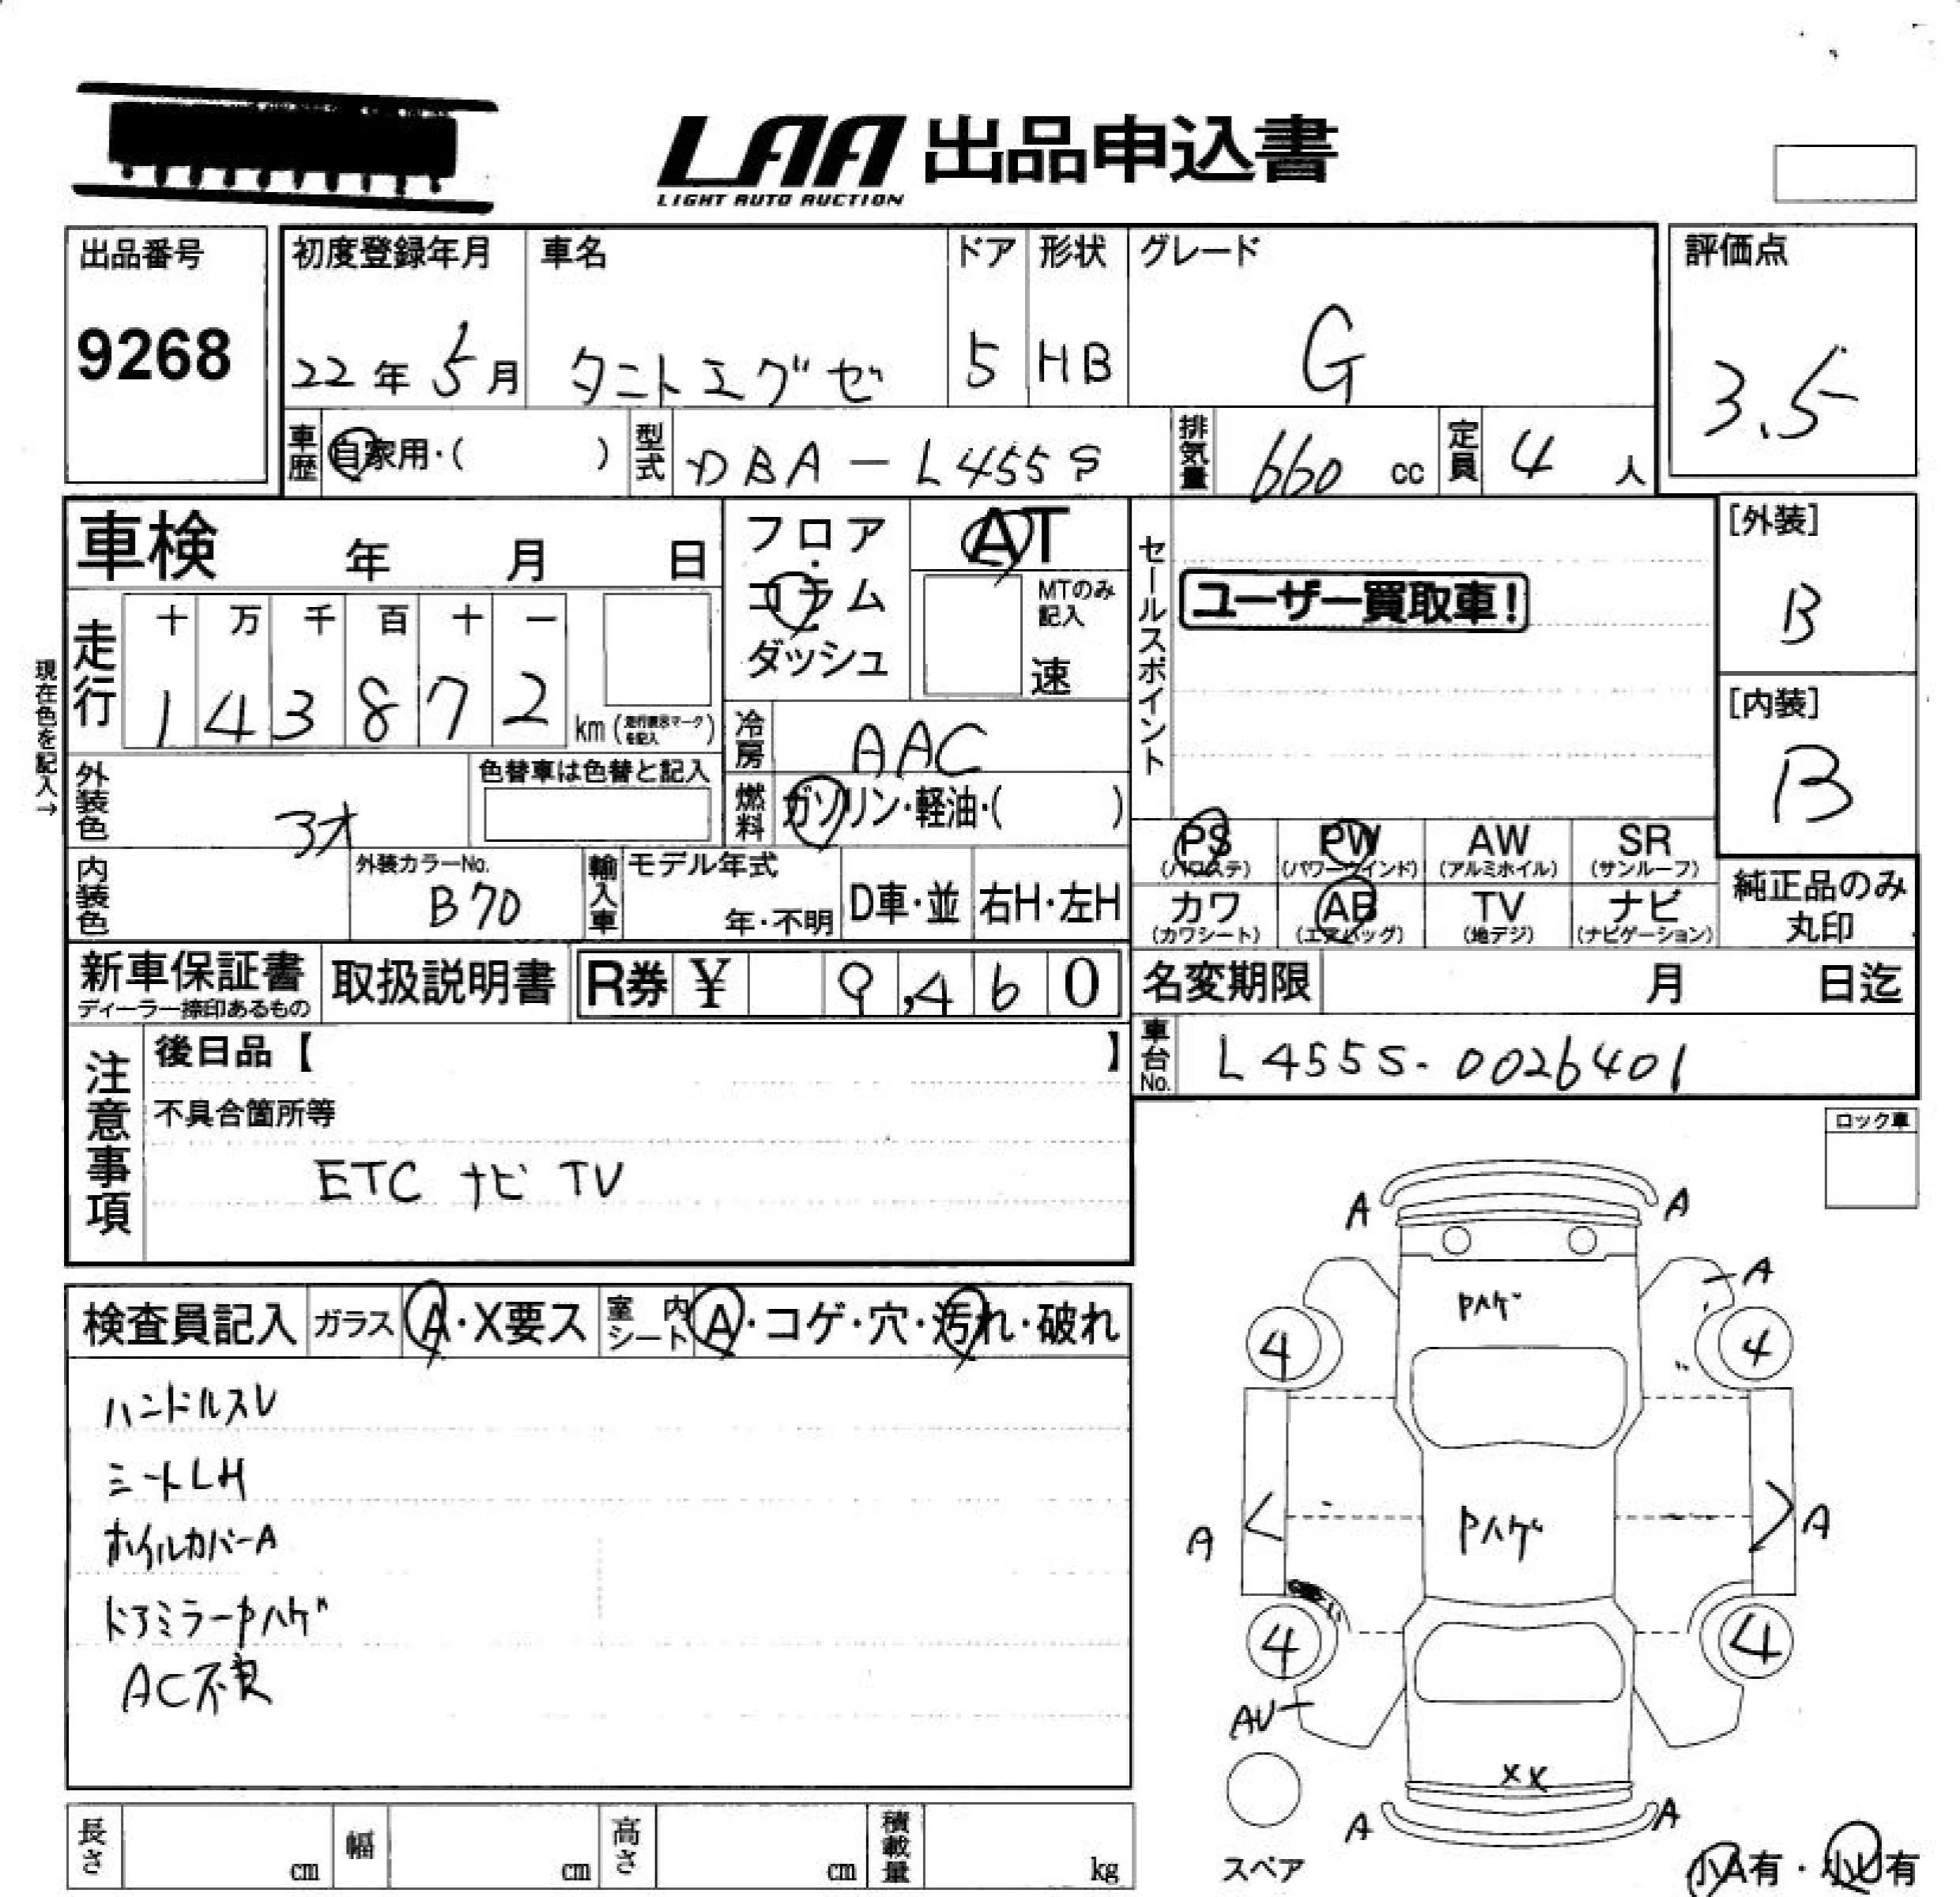 LAA 出品申込書
LIGHT AUTO AUCTION
出品番号
9268
初度登録年月
22年 5月
車名
タントエグゼ
ドア
5
形状
HB
グレード
G
評価点
3.5
車歴
自家用・( )
型式
DBA-L455S
排気量
660 cc
定員
4 人
車検 年 月 日
フロア・
コラム
ダッシュ
AT
MTのみ
記入
速
セールスポイント
ユーザー買取車!
[外装]
B
[内装]
B
現在色を記入→
走行
十 万 千 百 十 一
1 4 3 8 7 2
km(走行表示マークを記入)
冷房
AAC
燃料
ガソリン・軽油・( )
外装色
色替車は色替と記入
内装色
外装カラーNo.
B70
輸入車
モデル年式
年・不明
D車・並
右H・左H
PS
(パワステ)
PW
(パワーウインド)
AW
(アルミホイル)
SR
(サンルーフ)
カワ
(カワシート)
AB
(エアバッグ)
TV
(地デジ)
ナビ
(ナビゲーション)
純正品のみ
丸印
新車保証書
ディーラー捺印あるもの
取扱説明書
R券 ¥ 9,460
名変期限 月 日迄
車台No.
L455S-0026401
注意事項
後日品【 】
不具合箇所等
ETC ナビ TV
ロック車
検査員記入
ガラス
A・X要ス
室内
シート
A・コゲ・穴・汚れ・破れ
ハンドルスレ
シートLH
ホイルカバーA
ドアミラーPハゲ
AC不良
A A
A
Pハゲ
4 4
A Pハゲ A
4 4
AU
XX
A A
スペア
小A有・小U有
長さ cm
幅 cm
高さ cm
積載量 kg